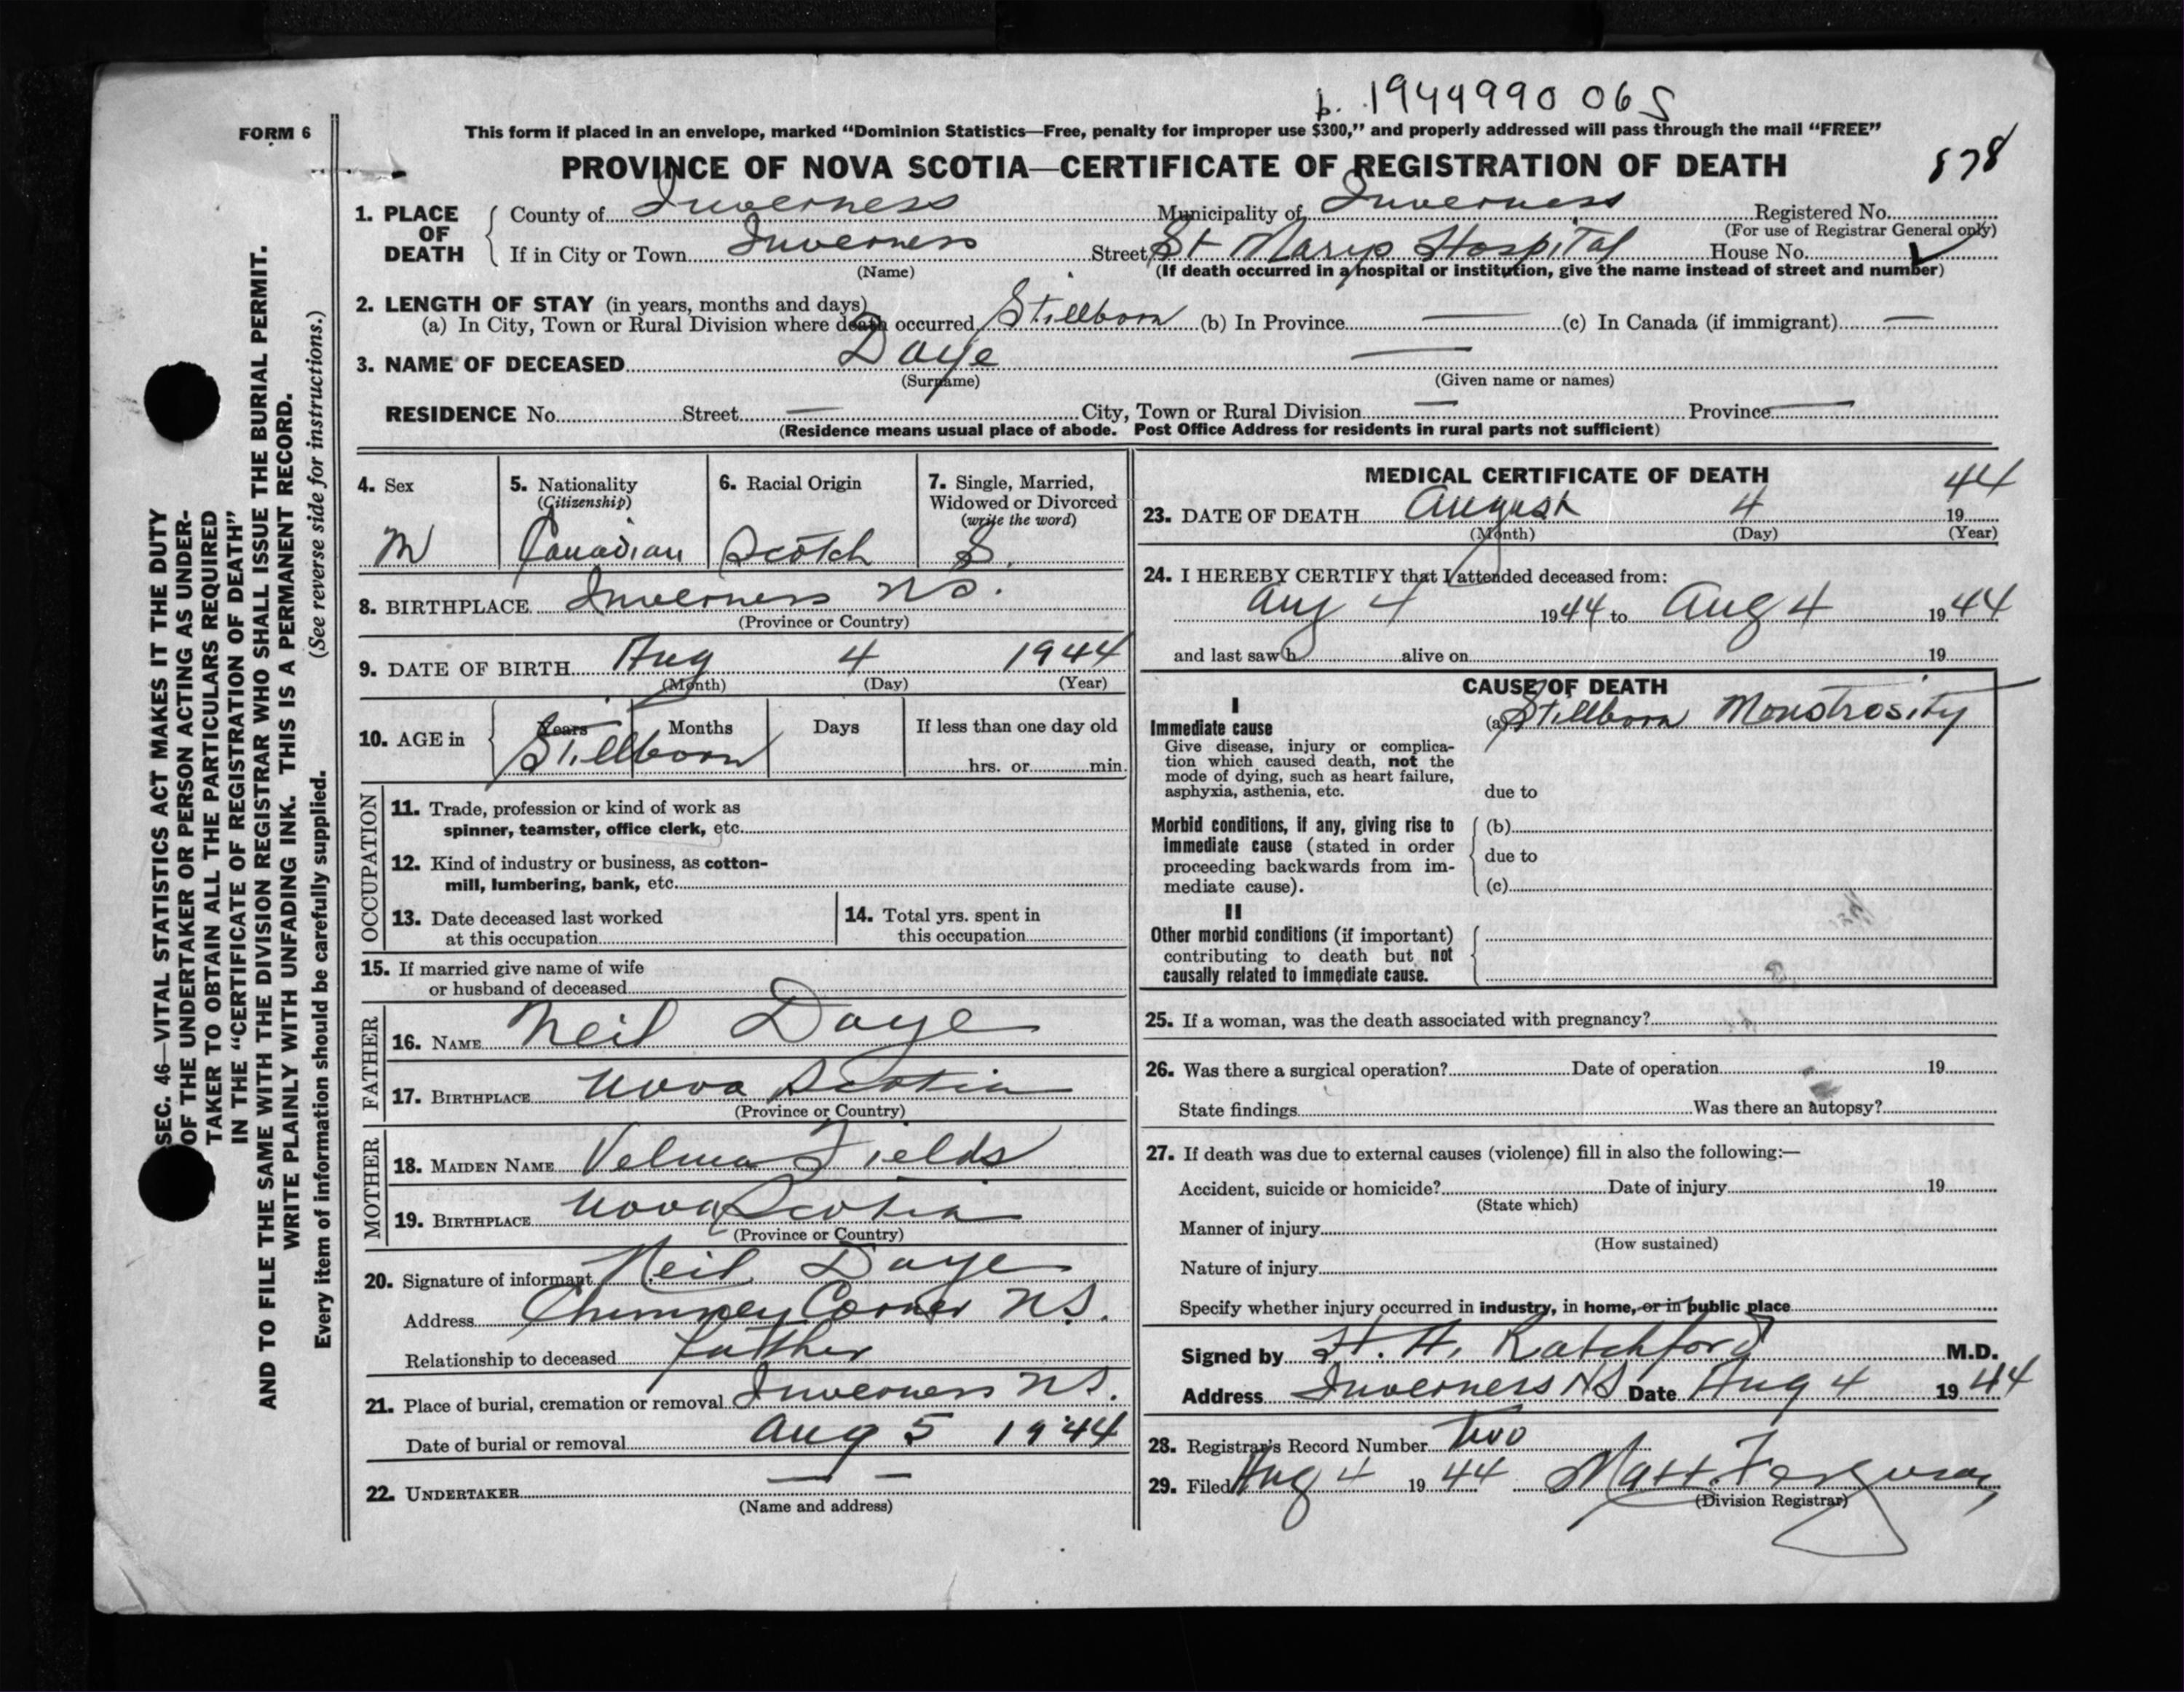 b. 1944990 065
FORM 6
This form if placed in an envelope, marked "Dominion Statistics—Free, penalty for improper use $300," and properly addressed will pass through the mail "FREE"
PROVINCE OF NOVA SCOTIA—CERTIFICATE OF REGISTRATION OF DEATH
878
1. PLACE OF DEATH County of Inverness Municipality of Inverness Registered No.
(For use of Registrar General only)
If in City or Town Inverness Street St Marys Hospital House No.
(Name) (If death occurred in a hospital or institution, give the name instead of street and number)
2. LENGTH OF STAY (in years, months and days)
(a) In City, Town or Rural Division where death occurred Stillborn (b) In Province — (c) In Canada (if immigrant) —
3. NAME OF DECEASED Daye —
(Surname) (Given name or names)
RESIDENCE No. Street — City, Town or Rural Division — Province —
(Residence means usual place of abode. Post Office Address for residents in rural parts not sufficient)
4. Sex 5. Nationality 6. Racial Origin 7. Single, Married,
(Citizenship) Widowed or Divorced
(write the word)
M Canadian Scotch S.
8. BIRTHPLACE Inverness NS.
(Province or Country)
9. DATE OF BIRTH Aug 4 1944
(Month) (Day) (Year)
10. AGE in Years Months Days If less than one day old
Stillborn hrs. or min.
OCCUPATION
11. Trade, profession or kind of work as
spinner, teamster, office clerk, etc.
12. Kind of industry or business, as cotton-
mill, lumbering, bank, etc.
13. Date deceased last worked 14. Total yrs. spent in
at this occupation this occupation
15. If married give name of wife
or husband of deceased
FATHER
16. NAME Neil Daye
17. BIRTHPLACE Nova Scotia
(Province or Country)
MOTHER
18. MAIDEN NAME Velma Fields
19. BIRTHPLACE Nova Scotia
(Province or Country)
20. Signature of informant Neil Daye
Address Chimney Corner NS.
Relationship to deceased father
21. Place of burial, cremation or removal Inverness NS.
Date of burial or removal Aug 5 1944
22. UNDERTAKER — —
(Name and address)
MEDICAL CERTIFICATE OF DEATH
23. DATE OF DEATH August 4 1944
(Month) (Day) (Year)
24. I HEREBY CERTIFY that I attended deceased from:
Aug 4 1944 to Aug 4 1944
and last saw h alive on 19
CAUSE OF DEATH
I
Immediate cause (a) Stillborn Monstrosity
Give disease, injury or complica-
tion which caused death, not the
mode of dying, such as heart failure,
asphyxia, asthenia, etc. due to
Morbid conditions, if any, giving rise to (b)
immediate cause (stated in order due to
proceeding backwards from im-
mediate cause). (c)
II
Other morbid conditions (if important)
contributing to death but not
causally related to immediate cause.
25. If a woman, was the death associated with pregnancy?
26. Was there a surgical operation? Date of operation 19
State findings Was there an autopsy?
27. If death was due to external causes (violence) fill in also the following:—
Accident, suicide or homicide? Date of injury 19
(State which)
Manner of injury
(How sustained)
Nature of injury
Specify whether injury occurred in industry, in home, or in public place
Signed by H. H. Ratchford M.D.
Address Inverness NS Date Aug 4 1944
28. Registrar's Record Number Two
29. Filed Aug 4 1944 Matt. Ferguson
(Division Registrar)
SEC. 46—VITAL STATISTICS ACT MAKES IT THE DUTY
OF THE UNDERTAKER OR PERSON ACTING AS UNDER-
TAKER TO OBTAIN ALL THE PARTICULARS REQUIRED
IN THE "CERTIFICATE OF REGISTRATION OF DEATH"
AND TO FILE THE SAME WITH THE DIVISION REGISTRAR WHO SHALL ISSUE THE BURIAL PERMIT.
WRITE PLAINLY WITH UNFADING INK. THIS IS A PERMANENT RECORD.
Every item of information should be carefully supplied. (See reverse side for instructions.)